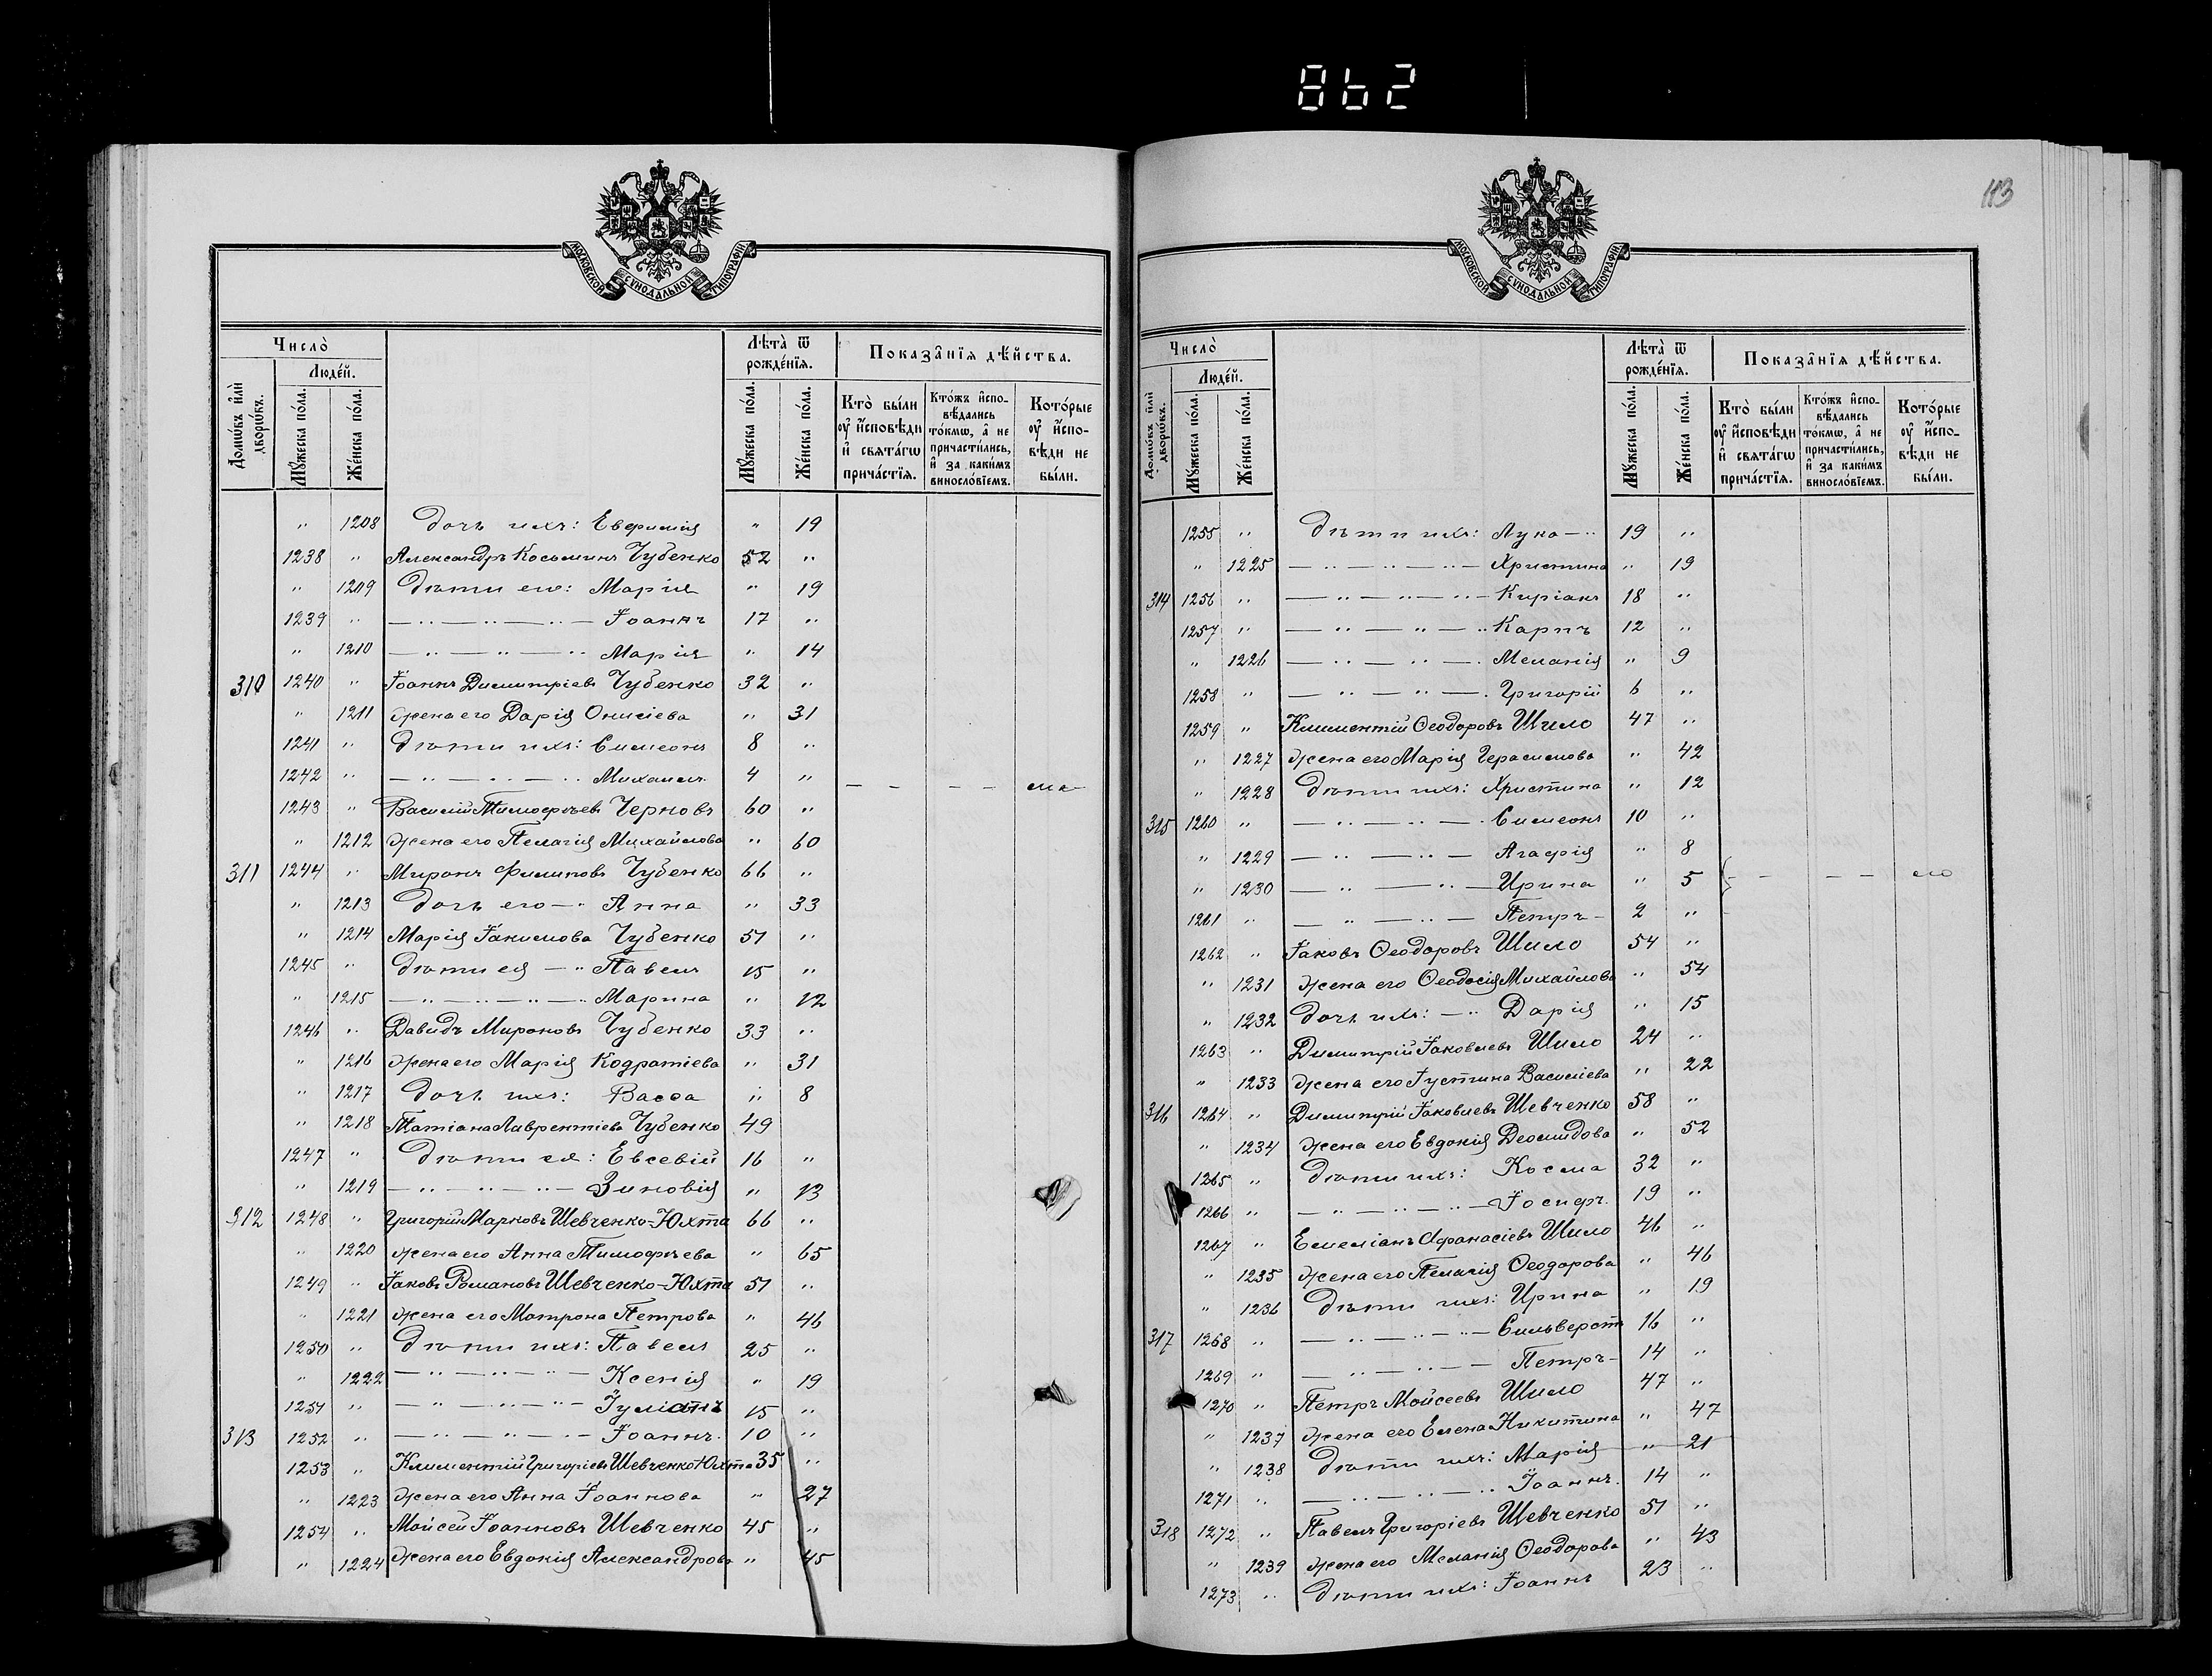 862
113
МОСКОВСКОЙ СУНОДАЛЬНОЙ ТИПОГРАФІИ
Число̀
Людéй.
Домѡ́въ и҆лѝ дворѡ́въ.
Мꙋ́жеска по́ла.
Же́нска по́ла.
Лѣ́та ѿ рожде́нїѧ.
Мꙋ́жеска по́ла.
Же́нска по́ла.
Показа̑нїѧ дѣ́йства.
Кто̀ бы́ли ᲂу҆ и҆́сповѣди и҆ свѧта́гѡ прича́стїѧ.
Кто́жъ и҆спо-вѣ́дались то́кмѡ, а҆ не причасти́лись, и҆ за каки́мъ виносло́вїемъ.
Кото́рые ᲂу҆ и҆́спо-вѣди не бы́ли.
" 1208 Дочь ихъ: Евфимія " 19
1238 " Александръ Косьминъ Чубенко 52 "
" 1209 Дѣти его: Марія " 19
1239 " — " — " — " — Іоаннъ 17 "
" 1210 — " — " — " Марія " 14
310 1240 " Іоаннъ Димитріевъ Чубенко 32 "
" 1211 Жена его Дарія Онисіева " 31
1241 " Дѣти ихъ: Симеонъ 8 "
1242 " — " — " — " Михаилъ 4 " — — — — ма
1243 " Василій Тимоѳѣевъ Черновъ 60 "
" 1212 Жена его Пелагія Михайлова " 60
311 1244 " Миронъ Филиповъ Чубенко 66 "
" 1213 Дочь его — " Анна " 33
" 1214 Марія Іакимова Чубенко 51 "
1245 " Дѣти ея — " Павелъ 15 "
" 1215 — " — " — " — " Марина " 12
1246 " Давидъ Мироновъ Чубенко 33 "
" 1216 Жена его Марія Кодратіева " 31
" 1217 Дочь ихъ: Васса " 8
" 1218 Татіана Лаврентіева Чубенко 49
1247 " Дѣти ея: Евсевій 16 "
" 1219 — " — " — " — Зиновія " 13
312 1248 " Григорій Марковъ Шевченко-Юхта 66 "
" 1220 Жена его Анна Тимоѳѣева " 65
1249 " Іаковъ Романовъ Шевченко-Юхта 51 "
" 1221 Жена его Матрона Петрова " 46
1250 " Дѣти ихъ: Павелъ 25 "
" 1222 — " — " — " — Ксенія " 19
1251 " — " — " — " — Іуліанъ 15 "
313 1252 " — " — " — " — Іоаннъ. 10 "
1253 " Климентій Григоріевъ Шевченко-Юхта 35 "
" 1223 Жена его Анна Іоаннова " 27
1254 " Мойсей Іоанновъ Шевченко 45 "
" 1224 Жена его Евдокія Александрова " 45
Число̀
Людéй.
Домѡ́въ и҆лѝ дворѡ́въ.
Мꙋ́жеска по́ла.
Же́нска по́ла.
Лѣ́та ѿ рожде́нїѧ.
Мꙋ́жеска по́ла.
Же́нска по́ла.
Показа̑нїѧ дѣ́йства.
Кто̀ бы́ли ᲂу҆ и҆́сповѣди и҆ свѧта́гѡ прича́стїѧ.
Кто́жъ и҆спо-вѣ́дались то́кмѡ, а҆ не причасти́лись, и҆ за каки́мъ виносло́вїемъ.
Кото́рые ᲂу҆ и҆́спо-вѣди не бы́ли.
МОСКОВСКОЙ СУНОДАЛЬНОЙ ТИПОГРАФІИ
1255 " Дѣти ихъ: Лука — " 19 "
" 1225 — " — " — " — Христина " 19
314 1256 " — " — " — " — Киріакъ 18 "
1257 " — " — " — " Карпъ 12 "
" 1226 — " — " — . Меланія " 9
1258 " — " — " — . Григорій 6 "
1259 " Климентій Ѳеодоровъ Шило 47 "
" 1227 Жена его Марія Герасимова " 42
" 1228 Дѣти ихъ: Христина " 12
315 1260 " — " — " — . Симеонъ 10 "
" 1229 — " — " — Агафія " 8
" 1230 — " — " — Ирина " 5
1261 " — " — " — Петръ — 2 "
1262 " Іаковъ Ѳеодоровъ Шило 54 "
" 1231 Жена его Ѳеодосія Михайлова " 54
" 1232 Дочь ихъ: — " Дарія " 15
1263 " Димитрій Іаковлевъ Шило 24 "
" 1233 Жена его Іустина Василіева " 22
316 1264 " Димитрій Іаковлевъ Шевченко 58 "
" 1234 Жена его Евдокія Деомидова " 52
1265 " Дѣти ихъ: Косма 32 "
1266 " — " — " — " — Іосифъ. 19 "
1267 " Емеліанъ Афанасіевъ Шило 46 "
" 1235 Жена его Пелагія Ѳеодорова " 46
" 1236 Дѣти ихъ: Ирина " 19
317 1268 " — " — " — " — Сильверстъ 16 "
1269 " — " — " — Петръ — 14 "
1270 " Петръ Мойсеевъ Шило 47 "
" 1237 Жена его Елена Никитина " 47
" 1238 Дѣти ихъ: Марія " 21
1271 " — " — " — " Іоаннъ. 14 "
318 1272 " Павелъ Григоріевъ Шевченко 51 "
" 1239 Жена его Меланія Ѳеодорова " 43
1273 " Дѣти ихъ: Іоаннъ 23 "